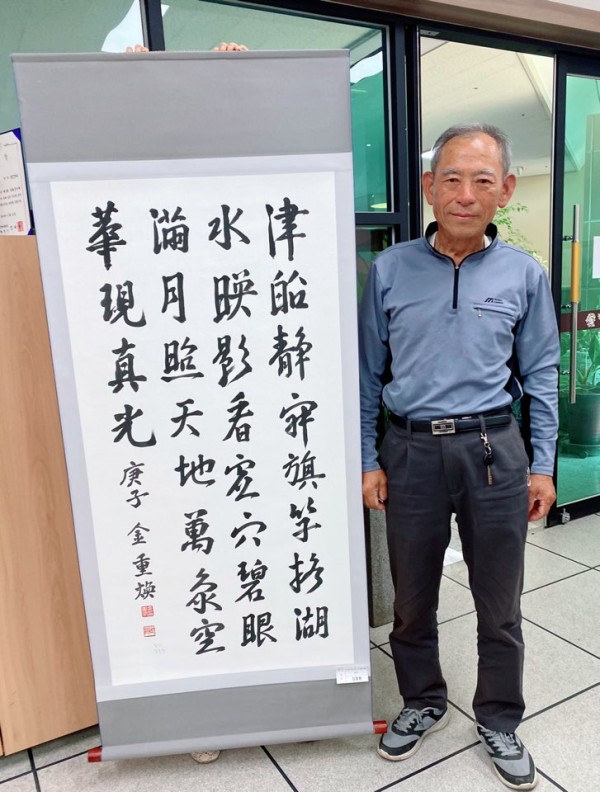 津船静寂旗竿湖
水暎影看穴碧眼
滿月照天地萬象空
華現真光
庚子 金重煥